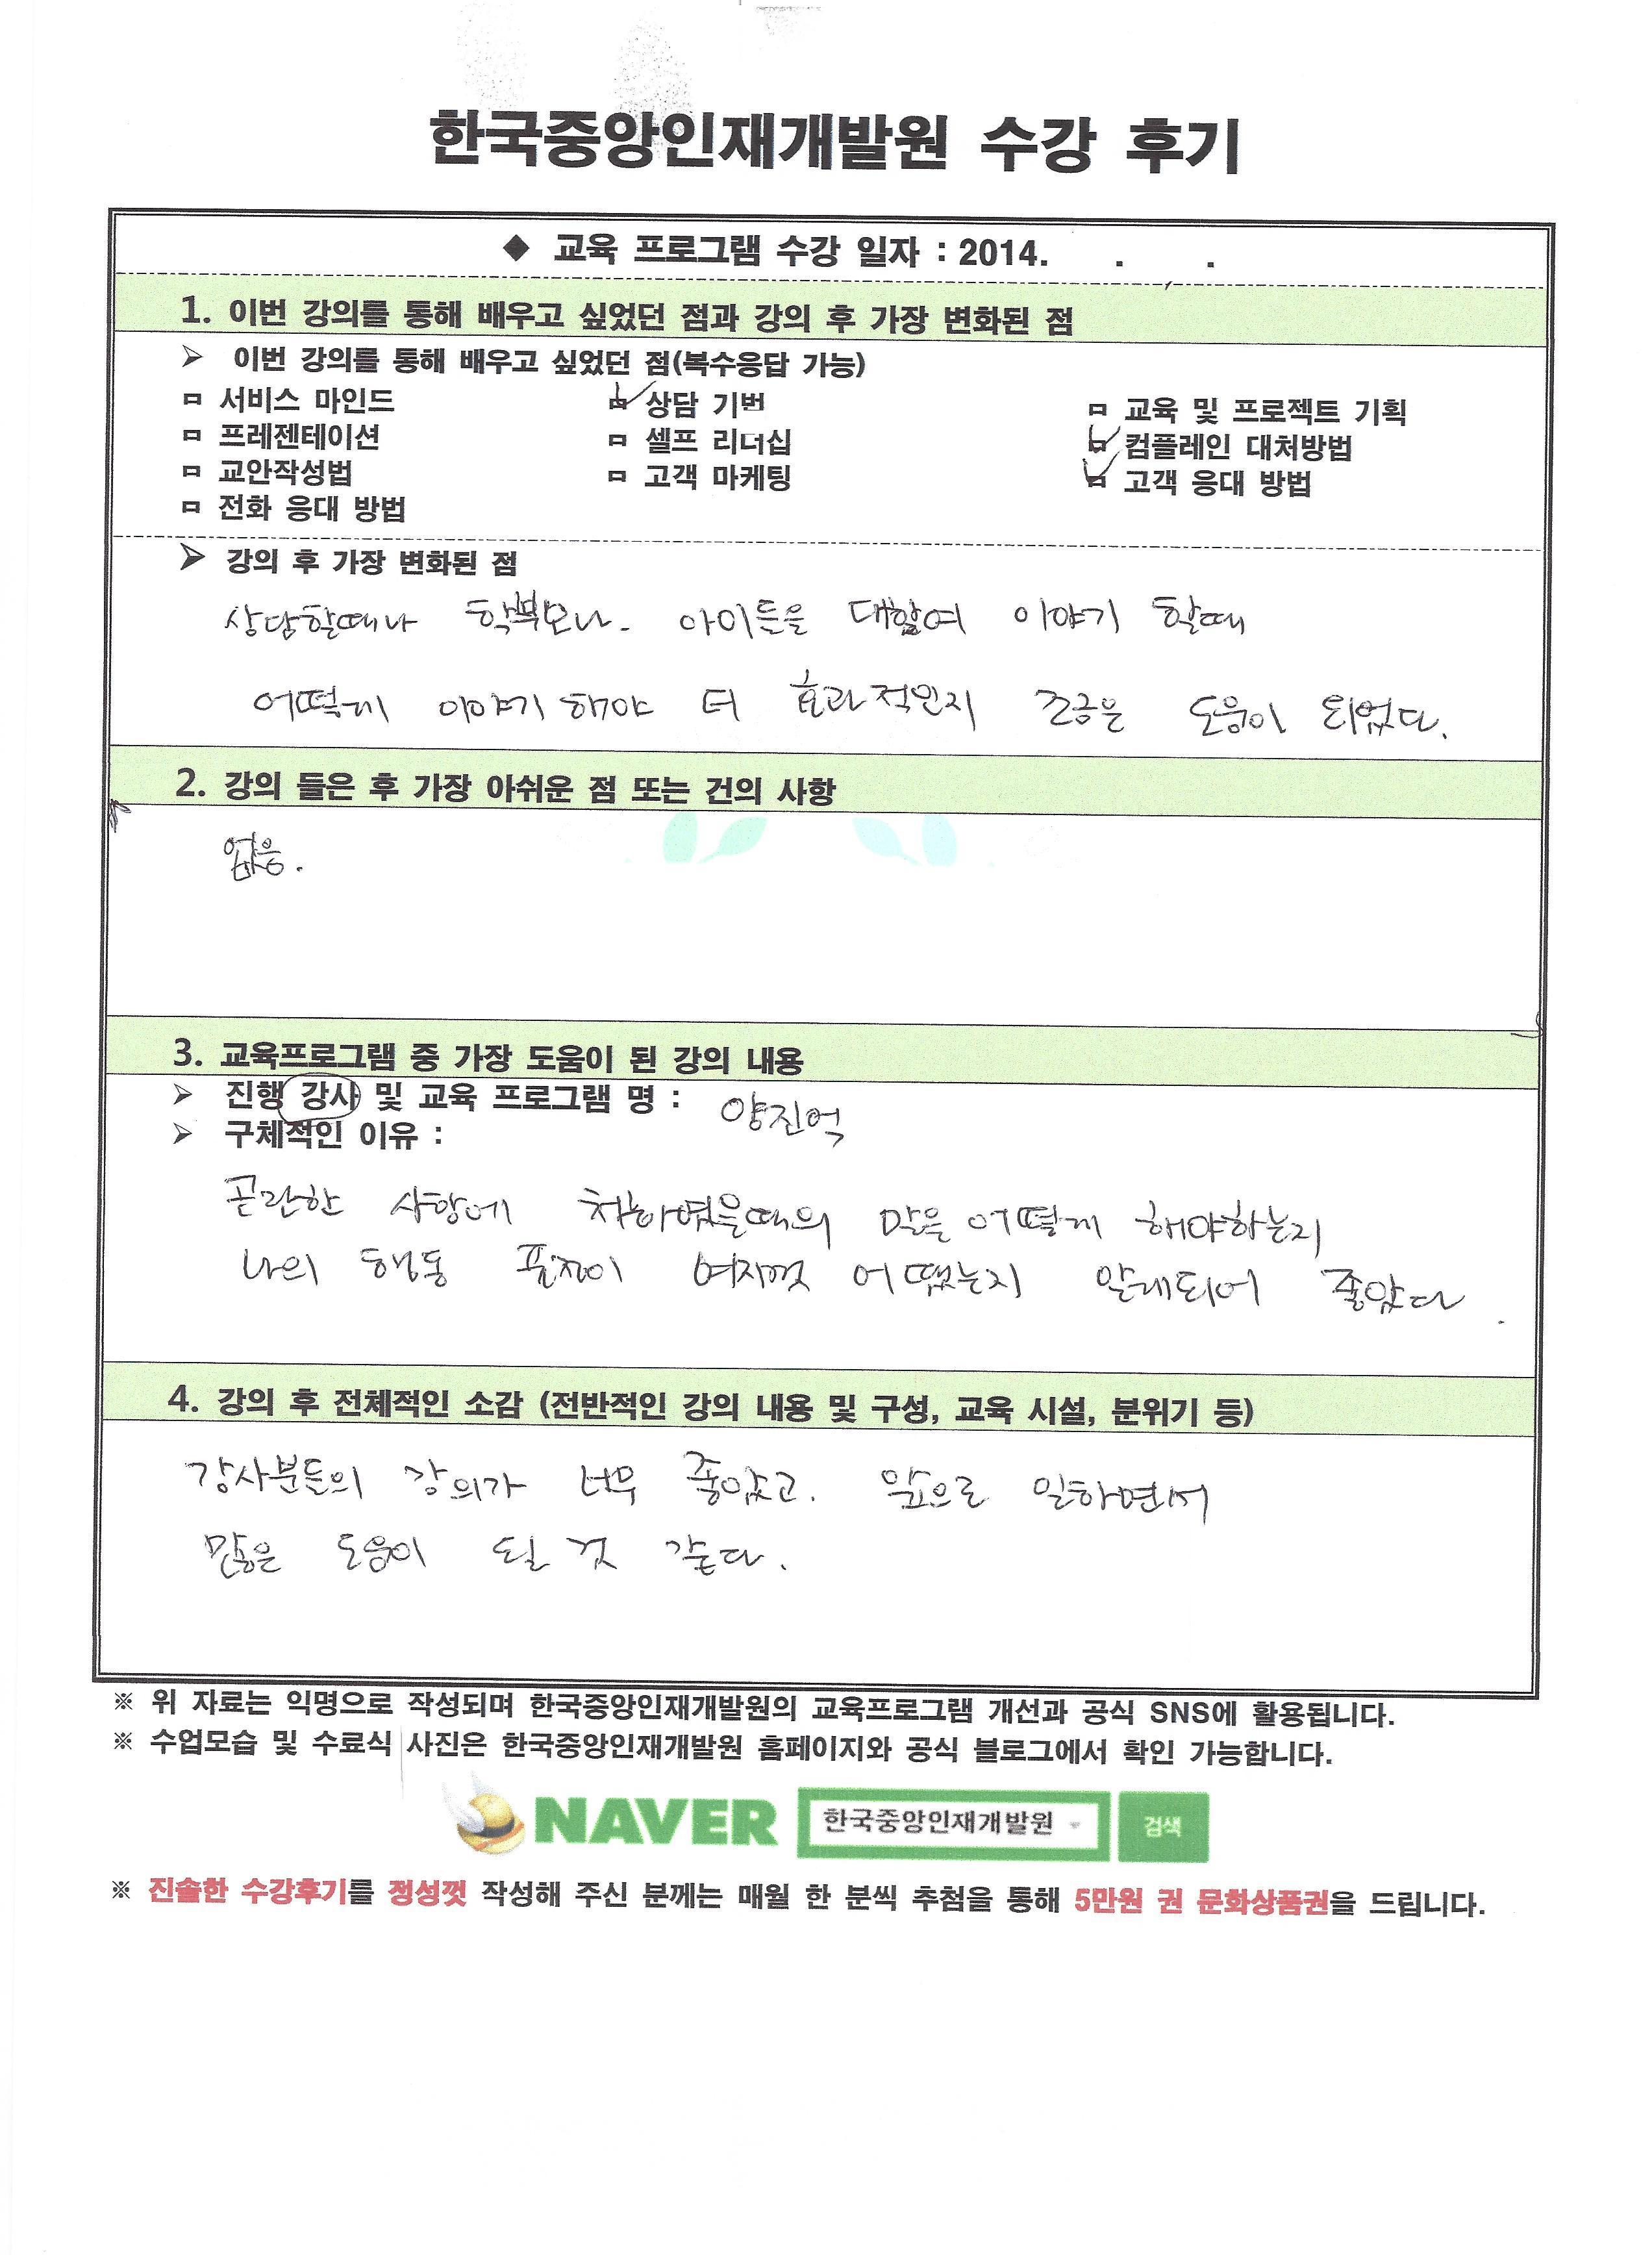 한국중앙인재개발원 수강 후기
◆ 교육 프로그램 수강 일자 : 2014. . .
1. 이번 강의를 통해 배우고 싶었던 점과 강의 후 가장 변화된 점
➢ 이번 강의를 통해 배우고 싶었던 점(복수응답 가능)
ㅁ 서비스 마인드 ㅁ 상담 기법 ㅁ 교육 및 프로젝트 기획
ㅁ 프레젠테이션 ㅁ 셀프 리더십 ㅁ 컴플레인 대처방법
ㅁ 교안작성법 ㅁ 고객 마케팅 ㅁ 고객 응대 방법
ㅁ 전화 응대 방법
➢ 강의 후 가장 변화된 점
상담할때나 학부모나. 아이들을 대할여 이야기 할때
어떻게 이야기해야 더 효과적인지 조금은 도움이 되었다.
2. 강의 들은 후 가장 아쉬운 점 또는 건의 사항
없음.
3. 교육프로그램 중 가장 도움이 된 강의 내용
➢ 진행 강사 및 교육 프로그램 명 : 양진억
➢ 구체적인 이유 :
곤란한 상황에 처하였을때의 말을 어떻게 해야하는지
나의 행동 표정이 여지껏 어땠는지 알게되어 좋았다.
4. 강의 후 전체적인 소감 (전반적인 강의 내용 및 구성, 교육 시설, 분위기 등)
강사분들의 강의가 너무 좋았고. 앞으로 일하면서
많은 도움이 될 것 같다.
※ 위 자료는 익명으로 작성되며 한국중앙인재개발원의 교육프로그램 개선과 공식 SNS에 활용됩니다.
※ 수업모습 및 수료식 사진은 한국중앙인재개발원 홈페이지와 공식 블로그에서 확인 가능합니다.
NAVER 한국중앙인재개발원 검색
※ 진솔한 수강후기를 정성껏 작성해 주신 분께는 매월 한 분씩 추첨을 통해 5만원 권 문화상품권을 드립니다.